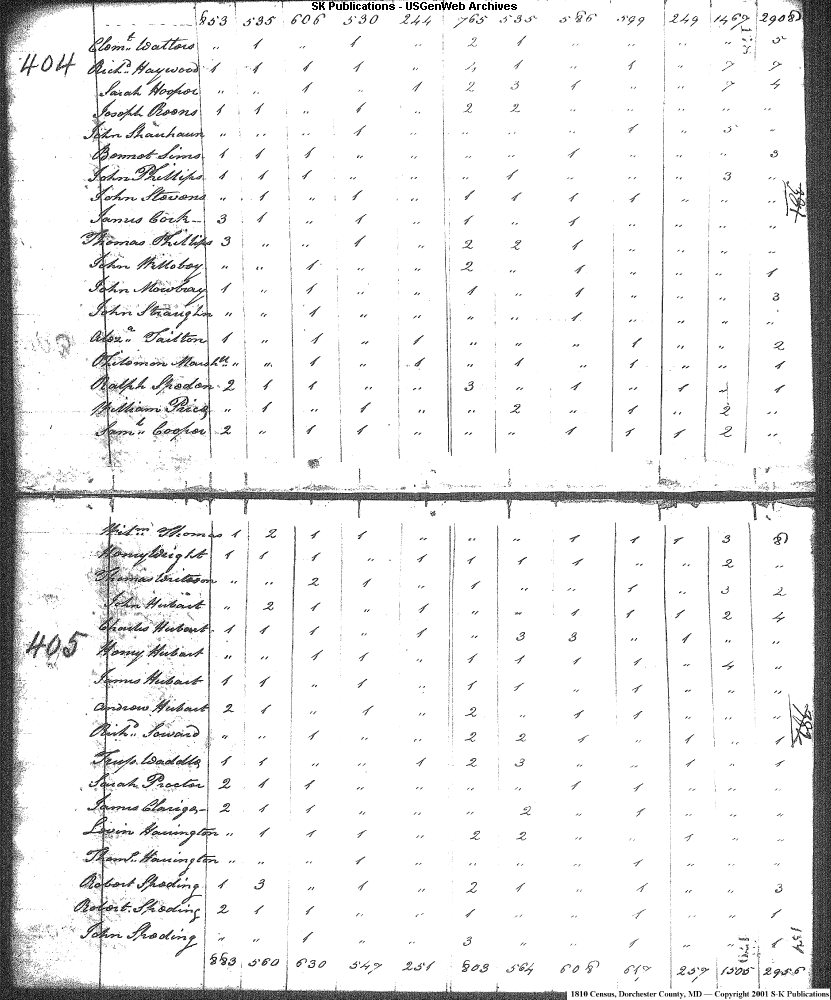 SK Publications - USGenWeb Archives
853 535 606 530 244 765 535 586 599 249 1467 2908
Clemt. Watters " 1 " 1 " 2 1 " " " " 5
404
Richd. Haywood 1 1 1 1 " 4 1 " 1 " 7 7
Sarah Hooper " " 1 " 1 2 3 1 " " 7 4
Joseph Roons 1 1 " 1 " 2 2 " " " " "
John Shanhaun " " " 1 " " " " 1 " 5 "
Bennet Sims 1 1 1 " " " " 1 " " " 3
John Phillips 1 1 1 " " " 1 " " " 3 "
John Stevens " 1 " 1 " 1 1 1 1 " " "
James Cork 3 1 " 1 " 1 " 1 " " " "
Thomas Phillips 3 " " 1 " 2 2 1 " " " "
John Willoboy " " 1 " " 2 " 1 " " " 1
John Mowbray 1 " 1 " " 1 " 1 " " " 3
John Straughn " " 1 " " " " 1 " " " "
Alexa. Tailton 1 " 1 " 1 " " " 1 " " 2
Philemon Marshll. " " 1 " 1 " 1 " 1 " " 1
Ralph Speden 2 1 1 " " 3 " 1 " 1 1
William Price " 1 " 1 " " 2 " 1 " 2 "
Saml. Cooper 2 " 1 1 " " " 1 1 1 2 "
Wilm. Thomas 1 2 1 1 " " " 1 1 1 3 8
Henry Wright 1 1 1 " 1 1 1 1 " " 2 "
Thomas " " 2 1 " 1 " " 1 " 3 2
John Hubart " 2 1 " 1 " " 1 1 1 2 4
Charles Hubart 1 1 1 " 1 " 3 3 " 1 " "
405
Henry Hubart " " 1 1 " 1 1 1 1 " 4 "
James Hubart 1 1 " 1 " 1 1 " 1 " " "
Andrew Hubart 2 1 " 1 " 2 " 1 1 " " "
Richd. Soward " " 1 " " 2 2 1 " 1 " 1
Waddle 1 1 " " 1 2 3 " " 1 " 1
Sarah Procter 2 1 1 " " " " 1 1 " " "
James 2 1 1 " " " 2 " 1 " " "
Levin Harrington " 1 1 1 " 2 2 " " 1 " "
Thoms. Harrington " " " 1 " " " " 1 " " "
Robert Speding 1 3 " 1 " 2 1 " 1 " " 3
Robert Speding 2 1 1 " " 1 " " 1 " " 1
John Speding " " 1 " " 3 " " 1 " " 1
883 560 630 547 251 803 564 608 617 257 1505 2956
1810 Census, Dorchester County, MD — Copyright 2001 S-K Publications